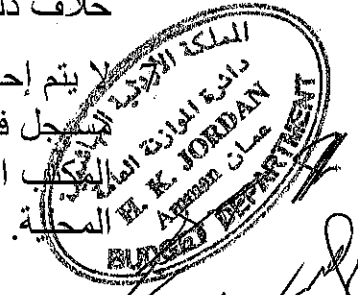 خلاف ذلك
لا يتم إح
مسجل ف
المكتب ا
المحلية.
المملكة الأردنية الهاشمية
دائرة الموازنة العامة
H. K. JORDAN
Amman عمان
BUDGET DEPARTMENT